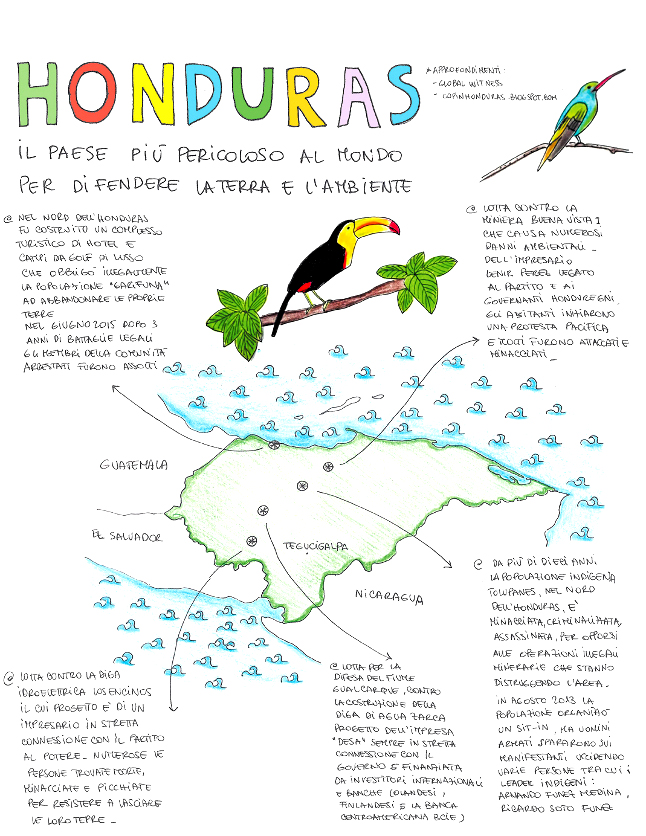 HONDURAS
* APPROFONDIMENTI:
- GLOBAL WITNESS
- COPINHONDURAS.BLOGSPOT.COM
IL PAESE PIÙ PERICOLOSO AL MONDO
PER DIFENDERE LA TERRA E L'AMBIENTE
@ NEL NORD DELL'HONDURAS
FU COSTRUITO UN COMPLESSO
TURISTICO DI HOTEL E
CAMPI DA GOLF DI LUSSO
CHE OBBLIGÒ ILLEGALMENTE
LA POPOLAZIONE "GARIFUNA"
AD ABBANDONARE LE PROPRIE
TERRE
NEL GIUGNO 2015 DOPO 3
ANNI DI BATTAGLIE LEGALI
GLI MEMBRI DELLA COMUNITÀ
ARRESTATI FURONO ASSOLTI
@ LOTTA CONTRO LA
MINIERA BUENA VISTA 1
CHE CAUSA NUMEROSI
DANNI AMBIENTALI _
DELL'IMPRESARIO
LENIR PEREZ LEGATO
AL PARTITO E AI
GOVERNANTI HONDUREGNI.
GLI ABITANTI INIZIARONO
UNA PROTESTA PACIFICA
E TUTTI FURONO ATTACCATI E
MINACCIATI _
GUATEMALA
EL SALVADOR
TEGUCIGALPA
NICARAGUA
@ DA PIÙ DI DIECI ANNI
LA POPOLAZIONE INDIGENA
TOLUPANES, NEL NORD
DELL'HONDURAS, E'
MINACCIATA, CRIMINALIZZATA,
ASSASSINATA, PER OPPORSI
ALLE OPERAZIONI ILLEGALI
MINERARIE CHE STANNO
DISTRUGGENDO L'AREA _
IN AGOSTO 2013 LA
POPOLAZIONE ORGANIZZÒ
UN SIT-IN, MA UOMINI
ARMATI SPARARONO SUI
MANIFESTANTI UCCIDENDO
VARIE PERSONE TRA CUI I
LEADER INDIGENI:
ARMANDO FUNEZ MEDINA,
RICARDO SOTO FUNEZ
@ LOTTA CONTRO LA DIGA
IDROELETTRICA LOS ENCINOS
IL CUI PROGETTO E' DI UN
IMPRESARIO IN STRETTA
CONNESSIONE CON IL PARTITO
AL POTERE _ NUMEROSE LE
PERSONE TROVATE MORTE,
MINACCIATE E PICCHIATE
PER RESISTERE A LASCIARE
LE LORO TERRE _
@ LOTTA PER LA
DIFESA DEL FIUME
GUALCARQUE, CONTRO
LA COSTRUZIONE DELLA
DIGA DI AGUA ZARCA
PROGETTO DELL'IMPRESA
"DESA" SEMPRE IN STRETTA
CONNESSIONE CON IL
GOVERNO E FINANZIATA
DA INVESTITORI INTERNAZIONALI
E BANCHE (OLANDESI,
FINLANDESI E LA BANCA
CENTROAMERICANA BCIE)